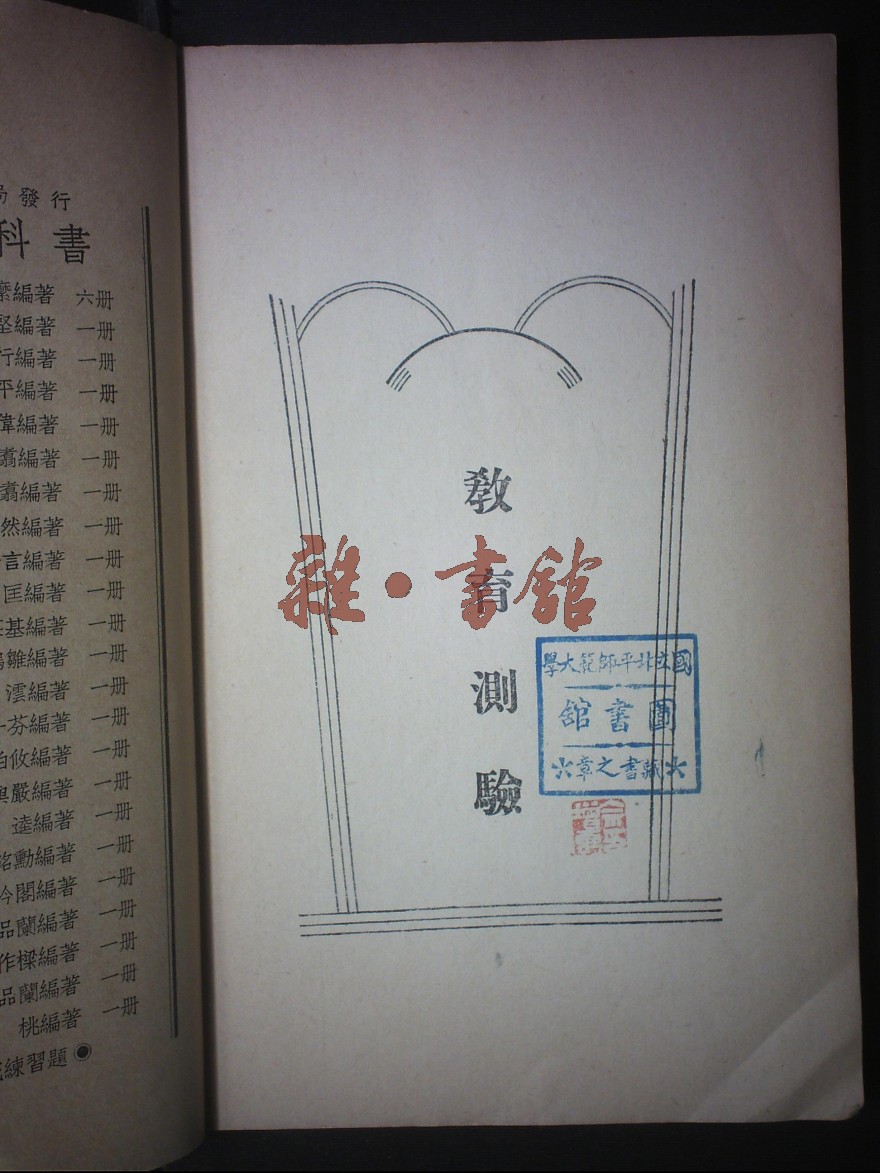 教育測驗
雜・書館
國立北平師範大學
圖書館
藏書之章
發行
科書
編著 六册
編著 一册
行編著 一册
平編著 一册
偉編著 一册
翥編著 一册
翥編著 一册
然編著 一册
言編著 一册
匡編著 一册
基編著 一册
雛編著 一册
澐編著 一册
芬編著 一册
攸編著 一册
嚴編著 一册
逵編著 一册
勳編著 一册
吟閣編著 一册
品蘭編著 一册
作樑編著 一册
品蘭編著 一册
桃編著 一册
練習題◉